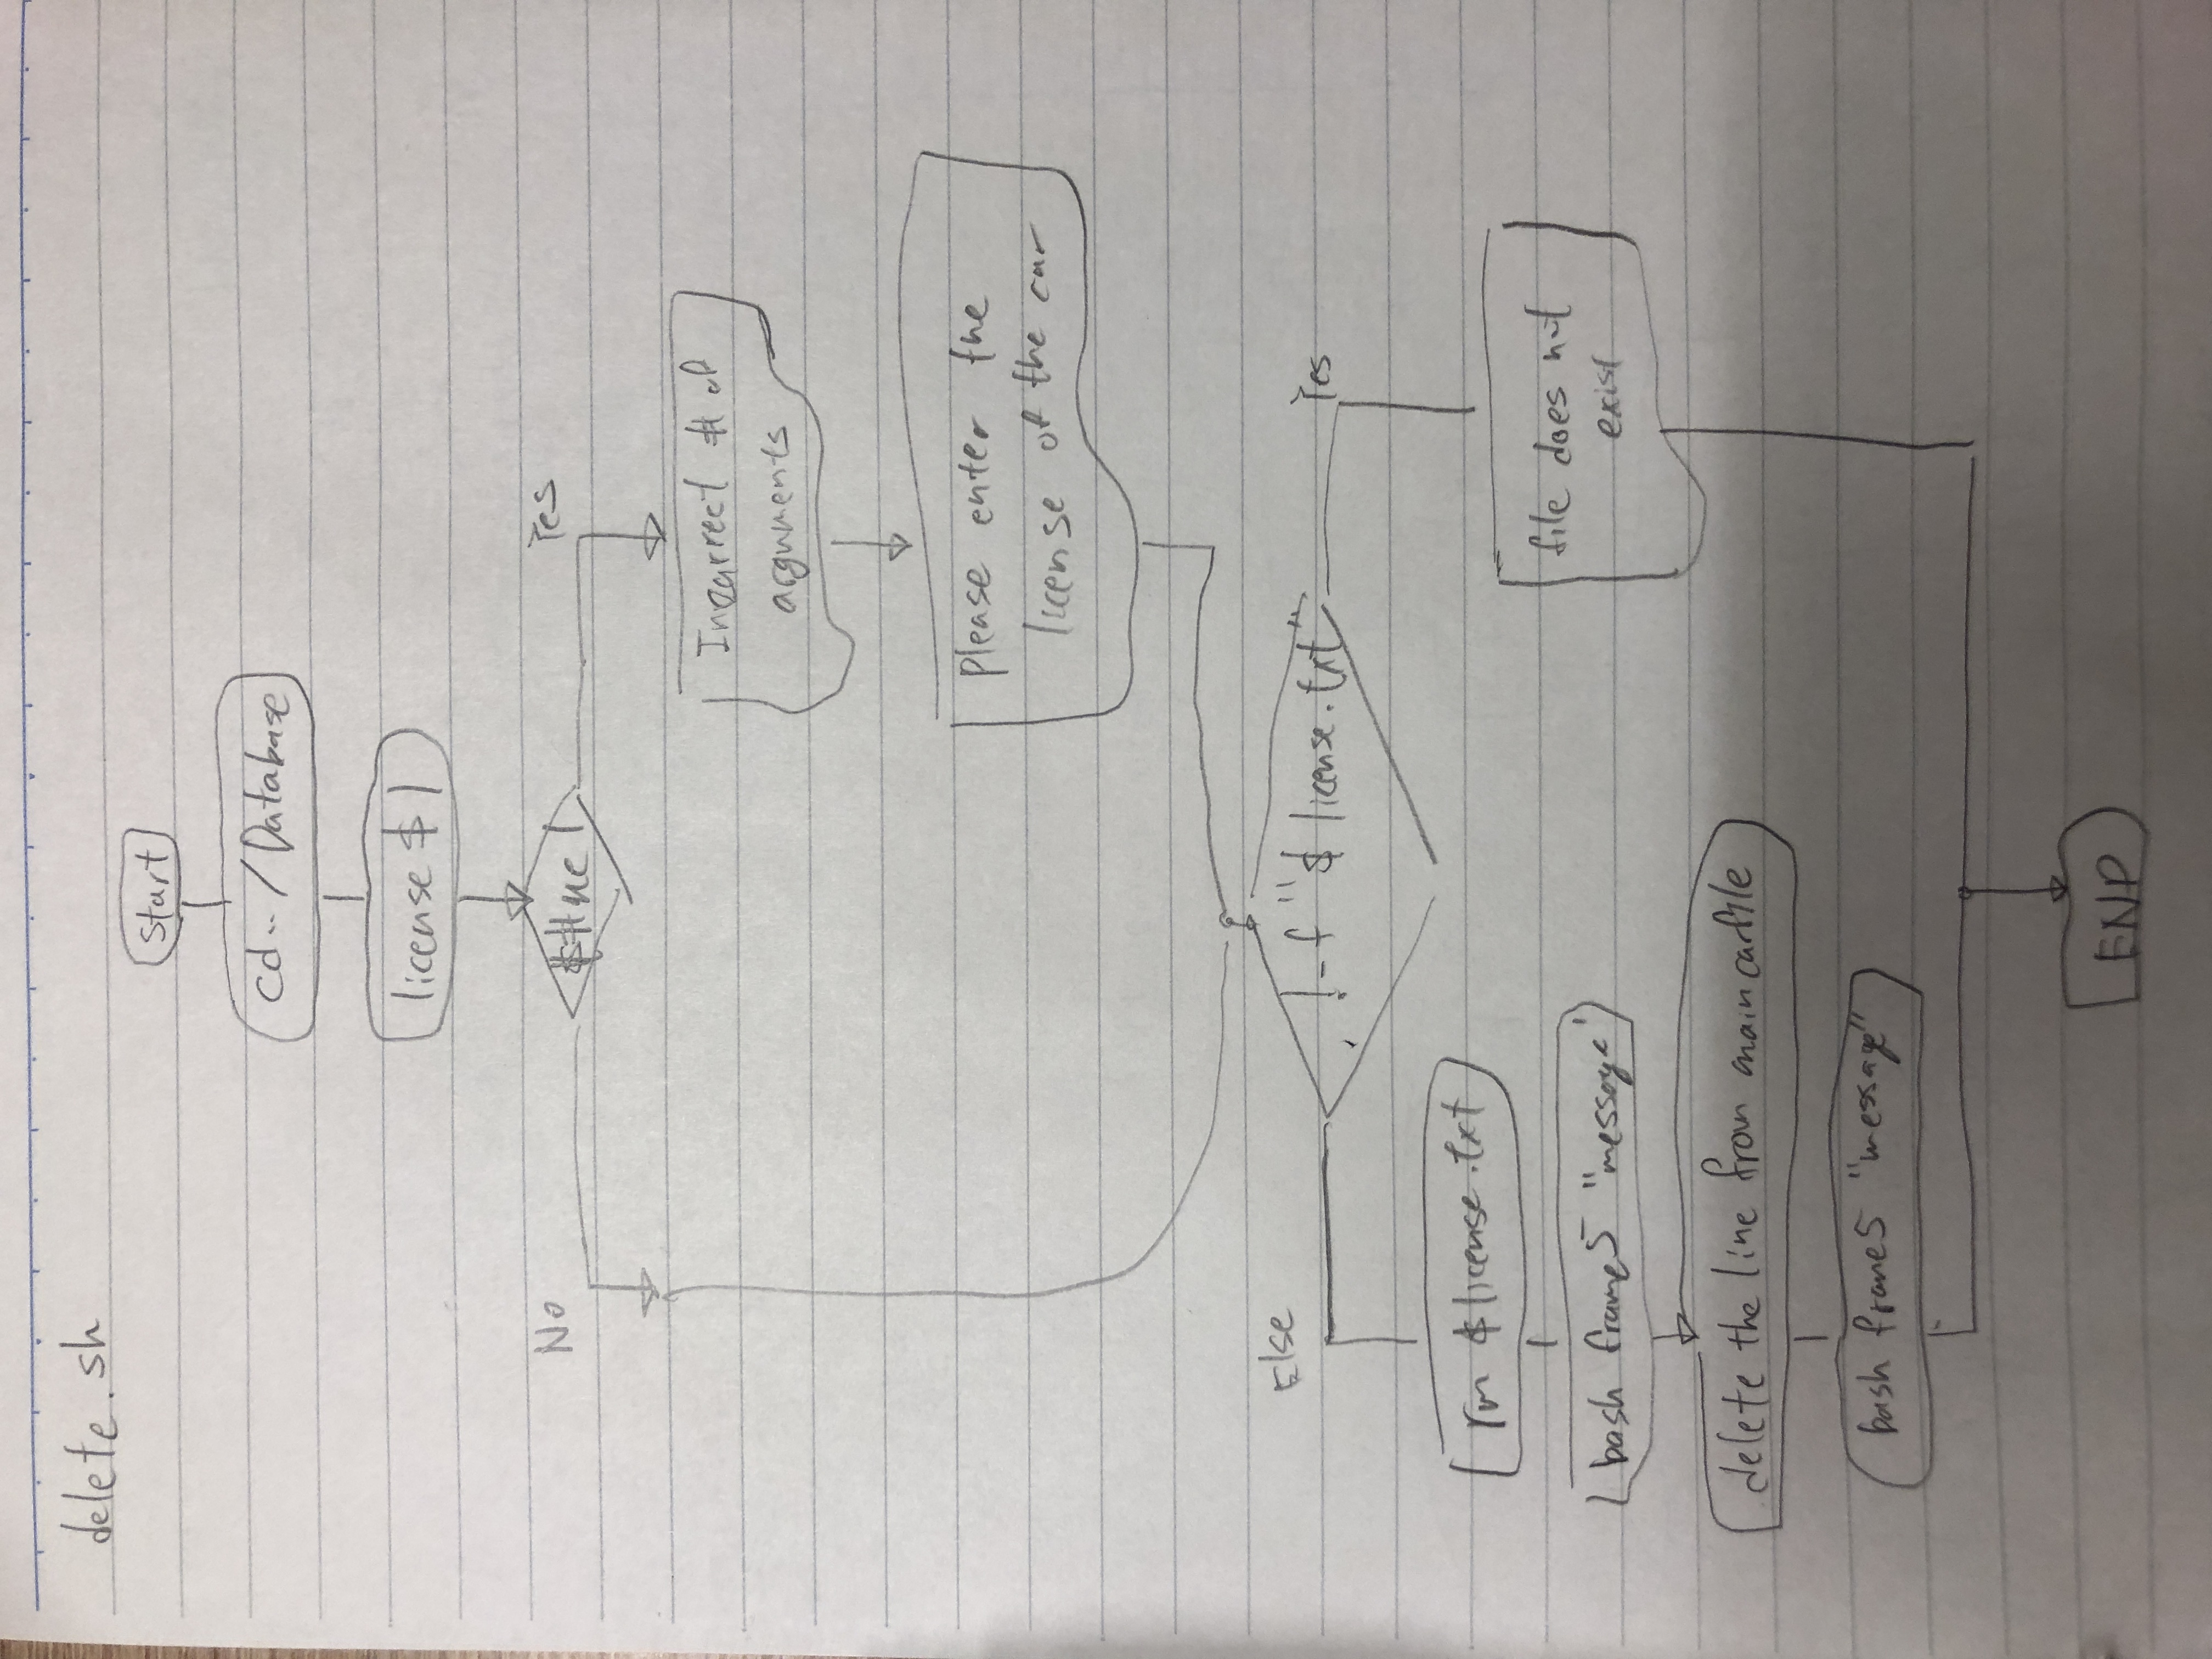 delete.sh
Start
cd../Database
license $1
No
$# ne 1
Yes
Incorrect # of
arguments
please enter the
license of the car
Else
! -f "$license.txt"
Yes
rm $license.txt
file does not
exist
bash frame5 "message'
delete the line from maincarfile
bash frame5 "message"
END